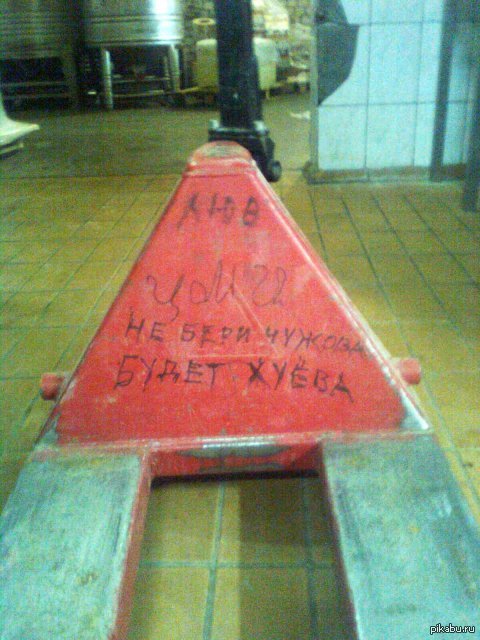 ЛЮВ
ЦМЧ
НЕ БЕРИ ЧУЖОВА
БУДЕТ ХУЁВА
pikabu.ru